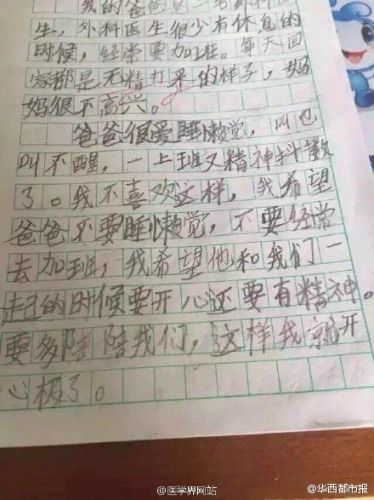 我的爸爸是一名外科医
生，外科医生很少有休息的
时候，经常要加班。每天回
家都是无精打采的样子，妈
妈很不高兴。
爸爸很爱睡懒觉，叫也
叫不醒，一上班又精神抖擞
了。我不喜欢这样，我希望
爸爸不要睡懒觉，不要经常
去加班，我希望他和我们一
起的时候要开心还要有精神。
要多陪陪我们，这样我就开
心极了。
@医学界网站
@华西都市报